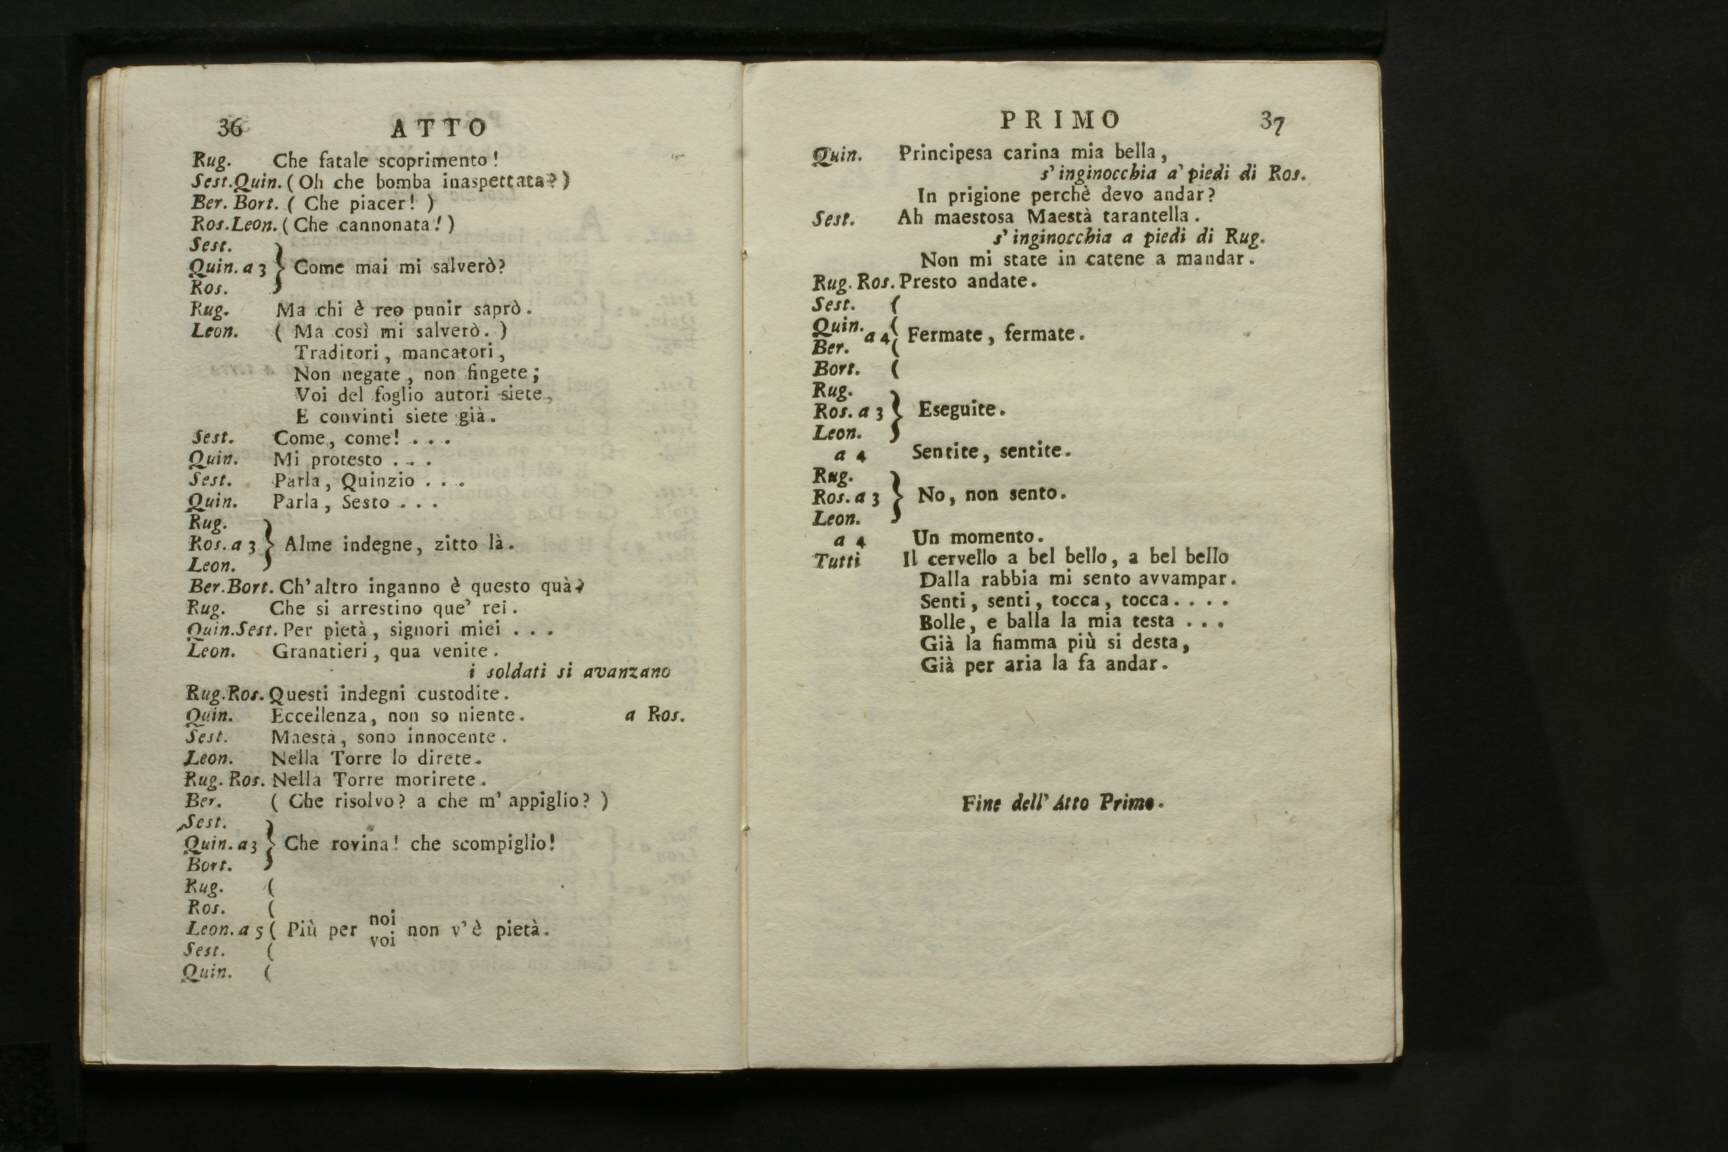 36 ATTO
Rug. Che fatale scoprimento!
Sest.Quin. (Oh che bomba inaspettata?)
Ber. Bort. ( Che piacer! )
Ros.Leon. (Che cannonata!)
Sest.
Quin. a 3 } Come mai mi salverò?
Ros.
Rug. Ma chi è reo punir saprò.
Leon. ( Ma così mi salverò. )
Traditori, mancatori,
Non negate, non fingete;
Voi del foglio autori siete,
E convinti siete già.
Sest. Come, come! . . .
Quin. Mi protesto . . .
Sest. Parla, Quinzio . . .
Quin. Parla, Sesto . . .
Rug.
Ros. a 3 } Alme indegne, zitto là.
Leon.
Ber.Bort. Ch'altro inganno è questo quà?
Rug. Che si arrestino que' rei.
Quin.Sest. Per pietà, signori miei . . .
Leon. Granatieri, qua venite.
i soldati si avanzano
Rug.Ros. Questi indegni custodite.
Quin. Eccellenza, non so niente. a Ros.
Sest. Maestà, sono innocente.
Leon. Nella Torre lo direte.
Rug. Ros. Nella Torre morirete.
Ber. ( Che risolvo? a che m' appiglio? )
Sest.
Quin. a 3 } Che rovina! che scompiglio!
Bort.
Rug. (
Ros. (
Leon. a 5 ( Più per noi voi non v' è pietà.
Sest. (
Quin. (
PRIMO 37
Quin. Principesa carina mia bella,
s' inginocchia a' piedi di Ros.
In prigione perchè devo andar?
Sest. Ah maestosa Maestà tarantella.
s' inginocchia a piedi di Rug.
Non mi state in catene a mandar.
Rug. Ros. Presto andate.
Sest. (
Quin. (
a 4 Fermate, fermate.
Ber. (
Bort. (
Rug.
Ros. a 3 } Eseguite.
Leon.
a 4 Sentite, sentite.
Rug.
Ros. a 3 } No, non sento.
Leon.
a 4 Un momento.
Tutti Il cervello a bel bello, a bel bello
Dalla rabbia mi sento avvampar.
Senti, senti, tocca, tocca. . . .
Bolle, e balla la mia testa . . .
Già la fiamma più si desta,
Già per aria la fa andar.
Fine dell' Atto Primo.